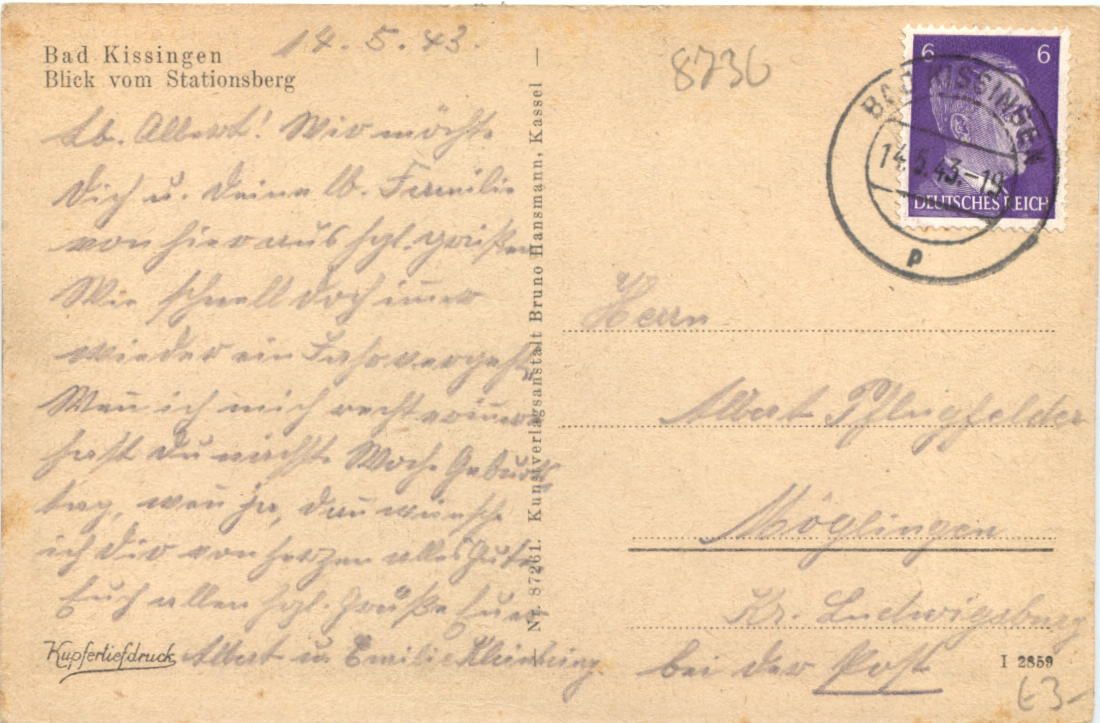 Bad Kissingen
Blick vom Stationsberg
14.5.43.
8736
6 6
BAD KISSINGEN
14.5.43.-19
DEUTSCHES REICH
p
Lb. Albert! Wir möchte
Dich u. Deine lb. Familie
von hier aus hzl. grüßen
Wie schnell doch immer
wieder ein Jahr vergeht,
Wenn ich mich recht erinnere
hast Du nächste Woche Geburts
tag, wenn ja, dann wünsche
ich Dir von Herzen alles Gute
Euch allen hzl. Grüße Euer
Albert u. Emilie
Kupfertiefdruck
Nr. 87261. Kunstverlagsanstalt Bruno Hansmann, Kassel
Herrn
Albert Pflugfelder
Möglingen
Kr. Ludwigsburg
bei der Post
I 2859
€3-